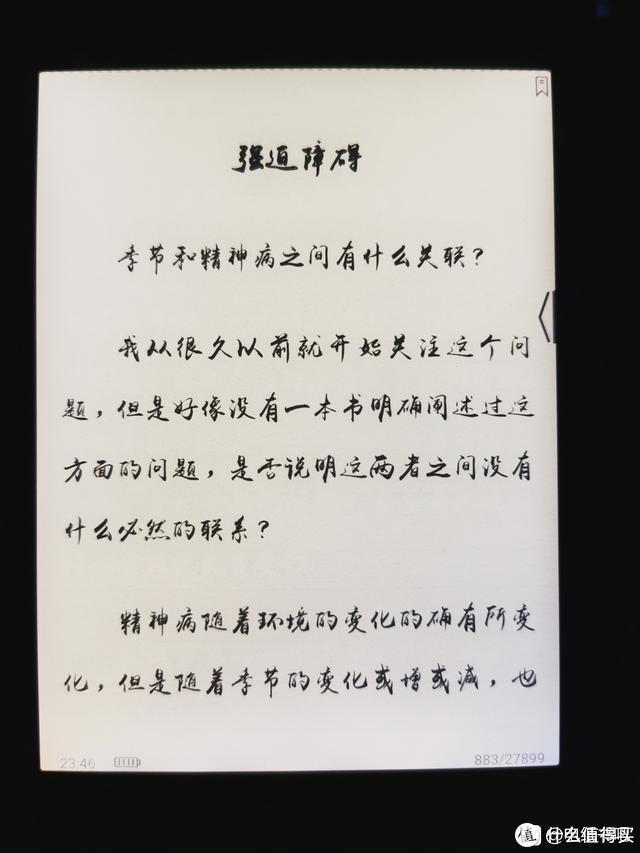 强迫障碍
季节和精神病之间有什么关联？
我从很久以前就开始关注这个问
题，但是好像没有一本书明确阐述过这
方面的问题，是否说明这两者之间没有
什么必然的联系？
精神病随着环境的变化的确有所变
化，但是随着季节的变化或增或减，也
23:46
883/27899
值 什么值得买